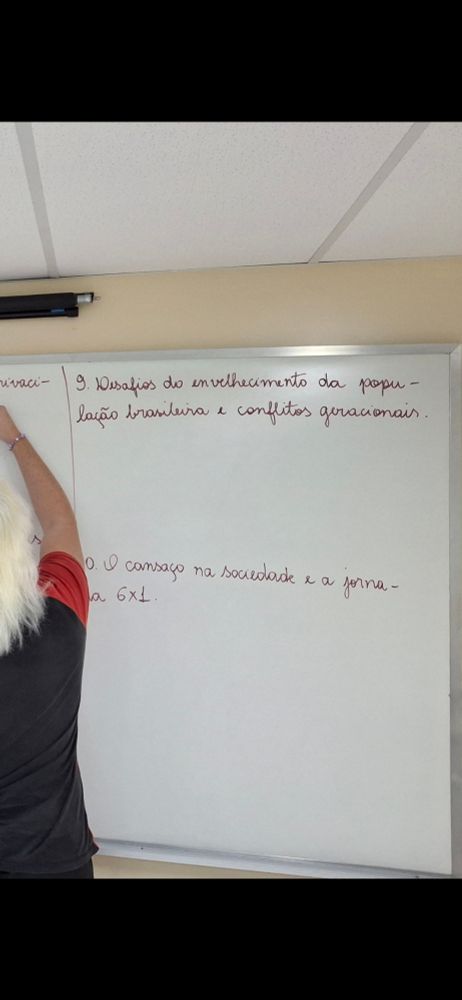 ivaci-
9. Desafios do envelhecimento da popu-
lação brasileira e conflitos geracionais.
s
0. O cansaço na sociedade e a jorna-
a 6x1.